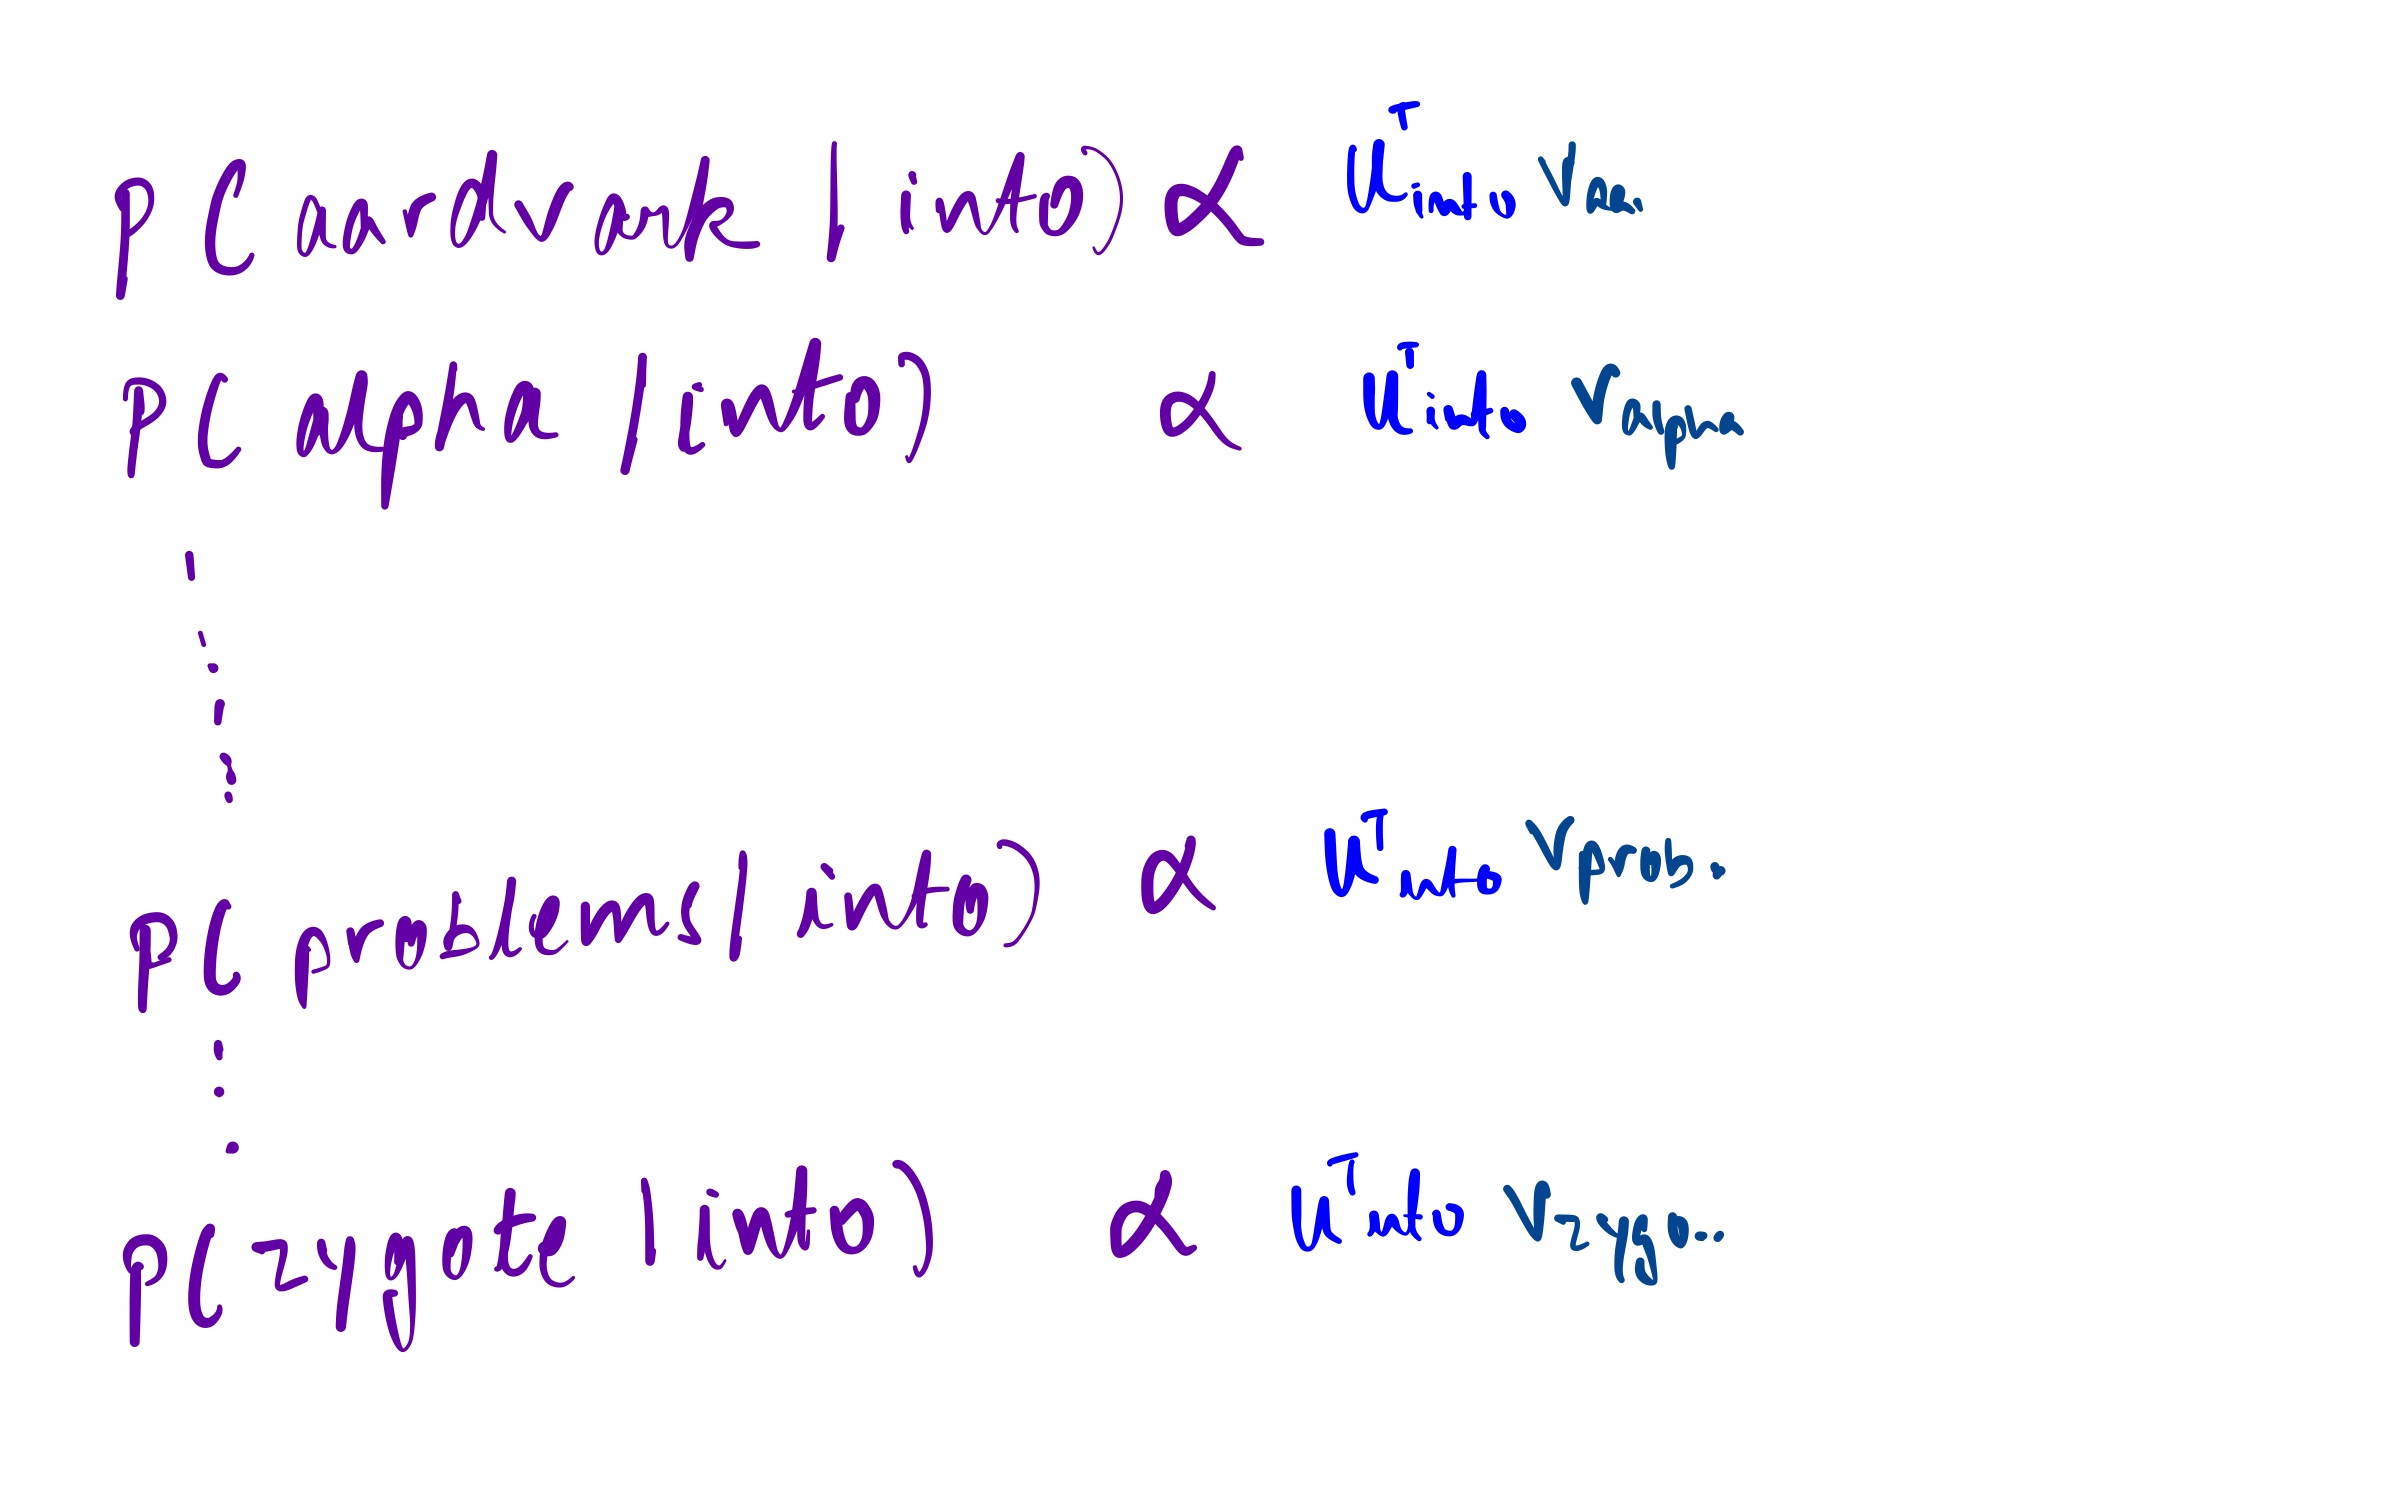 P(aardvark | into) ∝ u^T_into v_aa.
P(alpha | into) ∝ u^T_into v_alpha
P(problems | into) ∝ u^T_into v_prob.
P(zygote | into) ∝ u^T_into v_zygo..